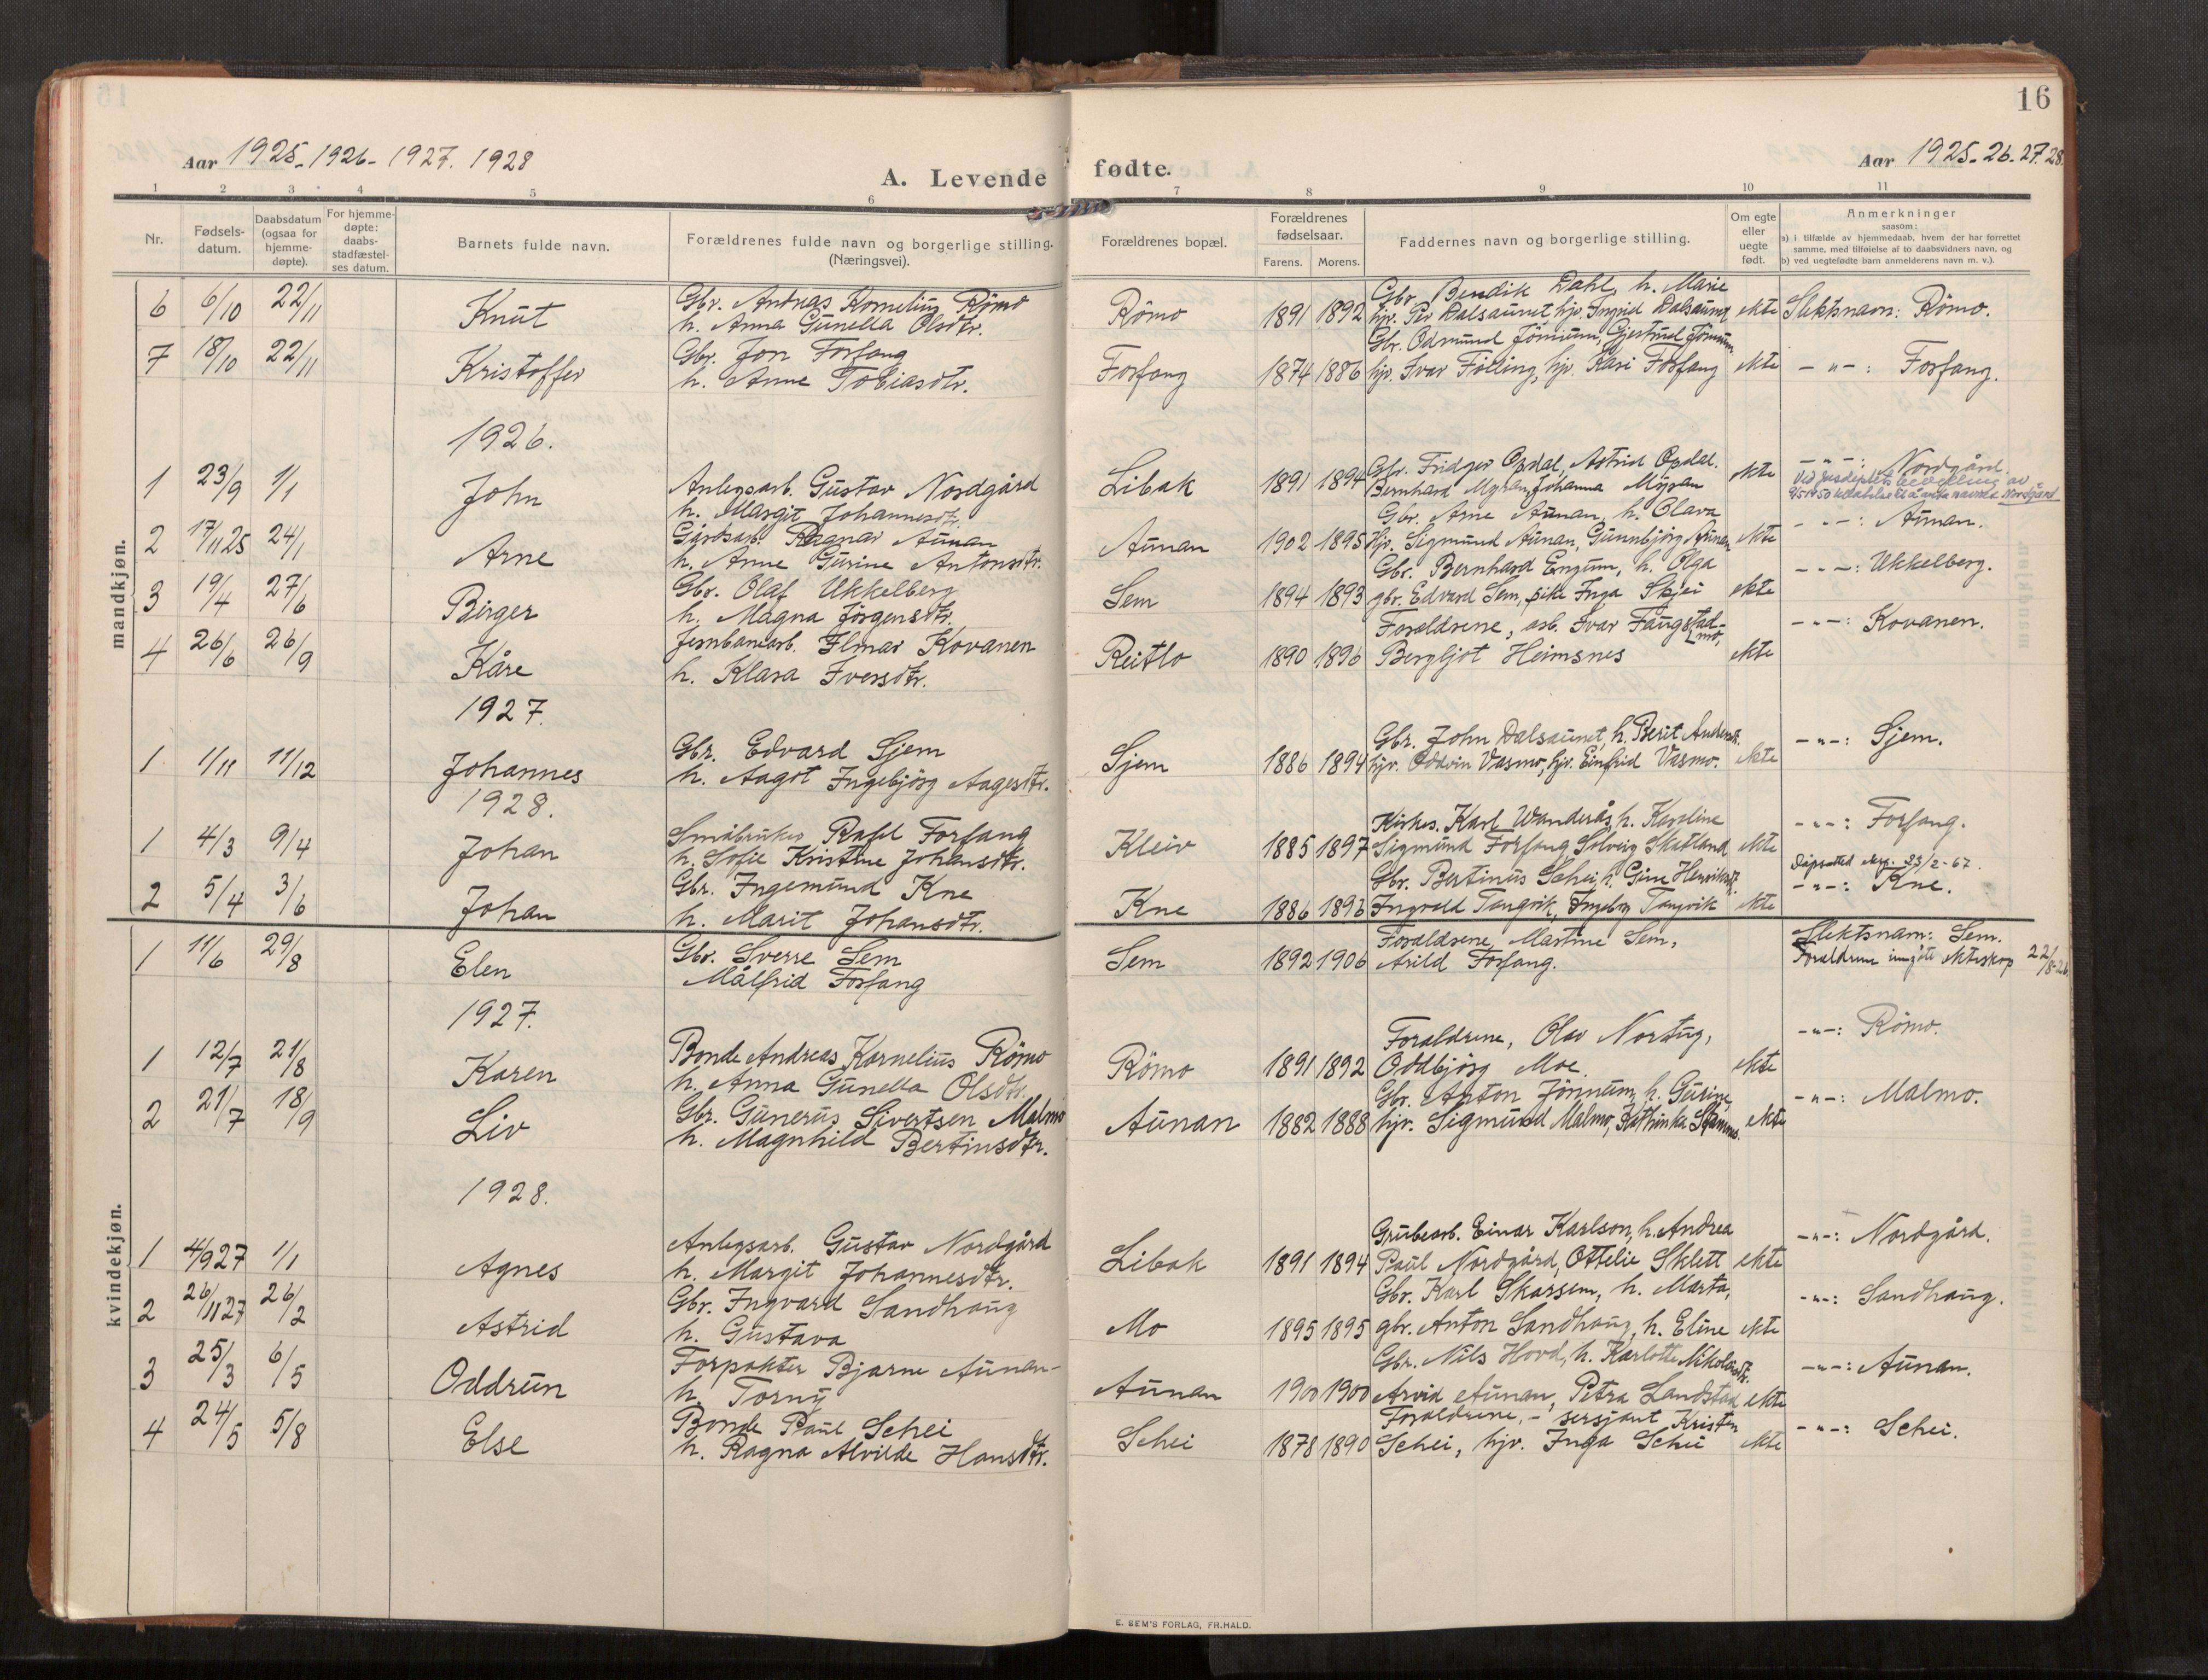 16
Aar 1925-1926-1927. 1928
A. Levende fødte.
Aar 1925-26-27.28.
1 2 3 4 5 6 7 8 9 10 11
Nr.
Fødsels-
datum.
Daabsdatum
(ogsaa for
hjemme-
døpte).
For hjemme-
døpte:
daabs-
stadfæstel-
ses datum.
Barnets fulde navn.
Forældrenes fulde navn og borgerlige stilling.
(Næringsvei).
Forældrenes bopæl.
Forældrenes
fødselsaar.
Farens. Morens.
Faddernes navn og borgerlige stilling.
Om egte
eller
uegte
født.
Anmerkninger
saasom:
a) i tilfælde av hjemmedaab, hvem der har forrettet
samme, med tilføielse af to daabsvidners navn, og
b) ved uegtefødte barn anmelderens navn m. v.).
mandkjøn.
6 6/10 22/11 Knut
Gbr. Andreas Kornelius Römo
h. Anna Gunella Olsdtr.
Römo 1891 1892
Gbr. Bendik Dahl, h. Marie
hjv. Per Dalsaunet hjv. Ingrid Dalsaunet
ekte Slektsnavn: Römo.
7 18/10 22/11 Kristoffer
Gbr. Jon Forfang
h. Anne Tobiasdtr.
Forfang 1874 1886
Gbr. Odmund Jönnum, Gjertrud Jönnum
hjv. Ivar Fölling, hjv. Kari Forfang
ekte -"-: Forfang.
1926.
1 23/9 1/1 John
Anlegsarb. Gustav Nordgård
h. Margit Johannesdtr.
Libak 1891 1894
Gbr. Fridger Opdal, Astrid Opdal.
Bernhard Myran, Johanna Myran
ekte -"-: Nordgård.
2 17/11 25 24/1 Arne
Gårdsarb. Ragnar Aunan
h. Anne Gurine Antonsdtr.
Aunan 1902 1895
Gbr. Arne Aunan, h. Olava
Hjv. Sigmund Aunan, Gunnbjörg Aunan
ekte -"-: Aunan.
3 19/4 27/6 Birger
Gbr. Olaf Ukkelberg
h. Magna Jörgensdtr.
Sem 1894 1893
Gbr. Bernhard Engum, h. Olga
gbr. Edvard Sem, pike Inga Skjei
ekte -"-: Ukkelberg.
4 26/6 26/9 Kåre
Jernbanearb. Ilmar Kovanen
h. Klara Iversdtr.
Reitlo 1890 1896
Foraldrene, arb. Ivar Faugstad-
mo,
Bergljot Heimsnes
ekte -"-: Kovanen.
1927.
1 1/11 11/12 Johannes
Gbr. Edvard Sjem
h. Aagot Ingebjörg Aagesdtr.
Sjem 1886 1894
Gbr. John Dalsaunet, h. Berit Andersdt.
hjv. Oddvin Vasmo, hjv. Einfrid Vasmo.
ekte -"-: Sjem.
1928.
1 4/3 9/4 Johan
Småbruker Rafel Forfang
h. Sofie Kristine Johansdtr.
Kleiv 1885 1897
Kirkes. Karl Wanderås, h. Karoline
Sigmund Forfang Solveig Skatland
ekte -"-: Forfang.
2 5/4 3/6 Johan
Gbr. Ingemund Kne
h. Marit Johansdtr.
Kne 1886 1896
Gbr. Bertinus Schei, h. Gine Henriksdt.
Ingvald Tangvik, Ingeborg Tangvik
ekte Dåpsatted 23/2-67.
-"-: Kne.
kvindekjøn.
1 11/6 29/8 Elen
Gbr. Sverre Sem
Målfrid Forfang
Sem 1892 1906
Foraldrene, Martine Sem,
Arild Forfang.
Slektsnam: Sem.
Foraldrene inngåtte ekteskap 22/8-26.
1927.
1 12/7 21/8 Karen
Bonde Andreas Kornelius Römo
h. Anna Gunella Olsdtr.
Römo 1891 1892
Foraldrene, Olav Nortug,
Oddbjörg Moe.
ekte -"-: Römo.
2 21/7 18/9 Liv
Gbr. Gunerus Sivertsen Malmo
h. Magnhild Bertinsdtr.
Aunan 1882 1888
Gbr. Anton Jönnum, h. Gurine
hjv. Sigmund Malmo, Kathinka
ekte -"-: Malmo.
1928.
1 4/9 27 1/1 Agnes
Anlegsarb. Gustav Nordgård
h. Margit Johannesdtr.
Libak 1891 1894
Grubearb. Einar Karlson, h. Andrea
Paul Nordgård, Ottelie Sklett
ekte -"-: Nordgård.
2 26/11 27 26/2 Astrid
Gbr. Ingvard Sandhaug
h. Gustava
Mo 1895 1895
Gbr. Karl Skarsem, h. Marta,
gbr. Anton Sandhaug, h. Eline
ekte -"-: Sandhaug.
3 25/3 6/5 Oddrun
Forpakter Bjarne Aunan-
h. Torny
Aunan 1900 1900
Gbr. Nils Hovd, h. Karlotte Nikolaisdt.
Arvid Aunan, Petra Landstad
ekte -"-: Aunan.
4 24/5 5/8 Else
Bonde Paul Schei
h. Ragna Alvilde Hansdtr.
Schei 1878 1890
Foraldrene, - sersjant Kristen
Schei, hjv. Inga Schei
ekte -"-: Schei.
E. SEM'S FORLAG, FR.HALD.